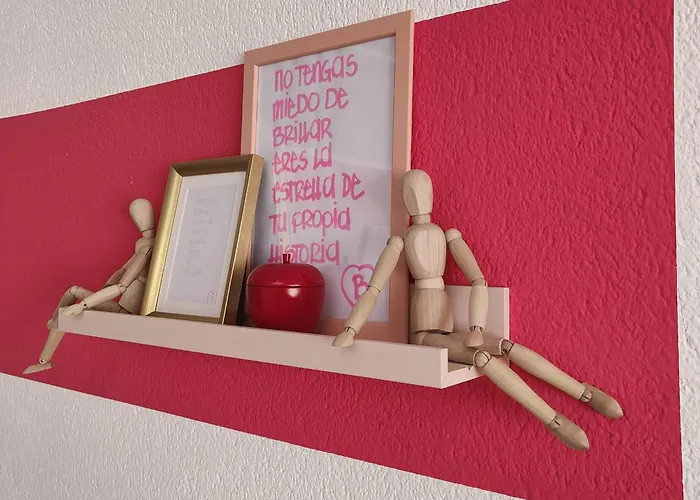 NO TENGAS
MIEDO DE
BRILLAR
ERES LA
ESTRELLA DE
TU PROPIA
HISTORIA
B